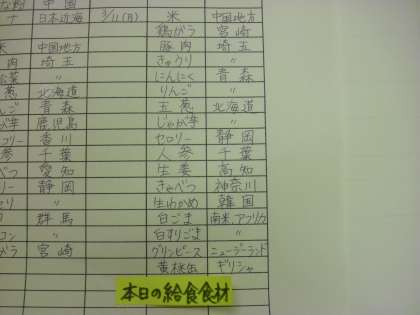 中国
ナ 日本近海 3/11(月) 米 中国地方
鶏がら 宮崎
米 中国地方 豚肉 埼玉
肉 埼玉 きゅうり 〃
〃 にんにく 青森
葱 北海道 りんご 〃
んご 青森 玉葱 北海道
が芋 鹿児島 じゃが芋 〃
ロリー 香川 セロリー 静岡
参 千葉 人参 千葉
べつ 愛知 生姜 高知
リー 静岡 きゃべつ 神奈川
り 〃 生わかめ 韓国
群馬 白ごま 南米,アフリカ
コン 〃 白すりごま 〃
がら 宮崎 グリンピース ニュージーランド
黄桃缶 ギリシャ
本日の給食食材